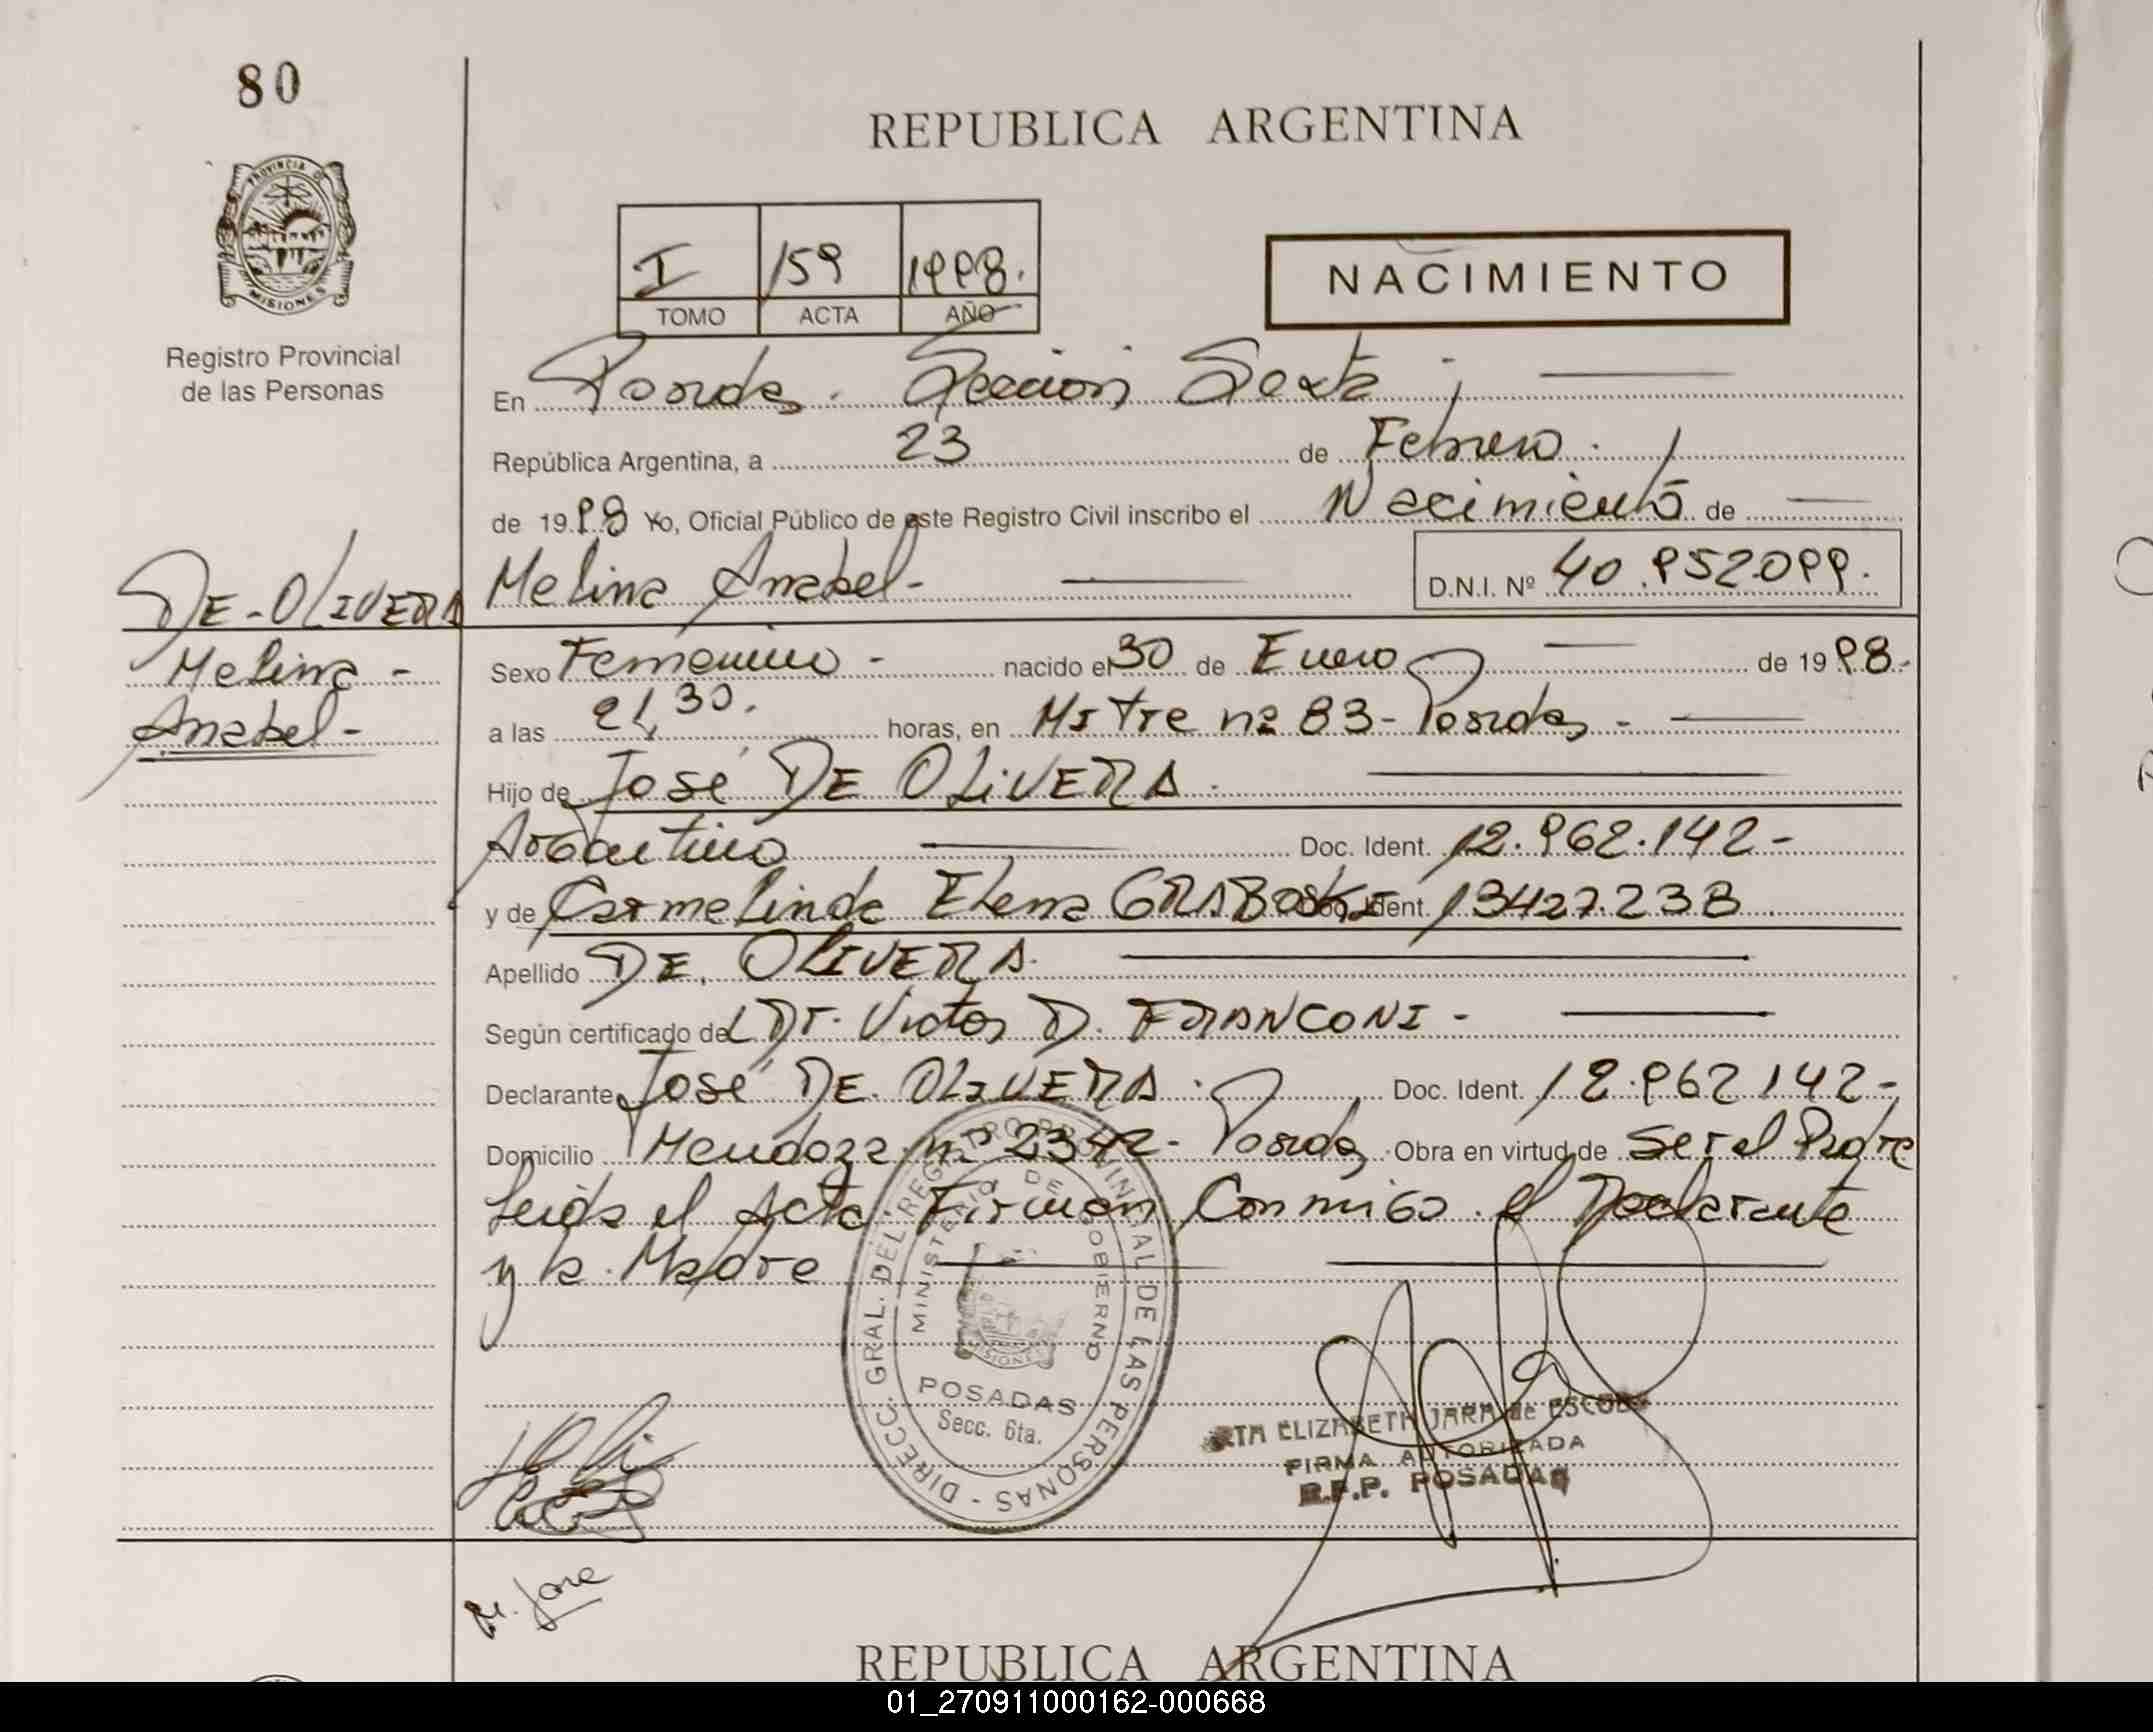 80
REPUBLICA ARGENTINA
PROVINCIA D
MISIONES
I 159 1998.
TOMO ACTA AÑO
NACIMIENTO
Registro Provincial
de las Personas
En Posadas. Sección Sexta
República Argentina, a 23 de Febrero.
de 1998 Yo, Oficial Público de este Registro Civil inscribo el Nacimiento de
DE-OLIVERA
Melina -
Anabel-
Melina Anabel- D.N.I. Nº 40.952099.
Sexo Femenino - nacido el 30 de Enero de 1998-
a las 21,30. horas, en Mitre nº 83- Posadas -
Hijo de José DE OLIVERA.
Argentino Doc. Ident. 12.962.142-
y de Carmelinda Elena GRABOSKI Doc. Ident. 13427.238
Apellido DE. OLIVERA.
Según certificado del Dr. Victor D. FRANCONI -
Declarante José DE. OLIVERA. Doc. Ident. 12.962142-
Domicilio Mendoza nº 2342- Posadas, Obra en virtud de ser el Padre
Leída el Acta Firman Conmigo el Declarante
y la Madre
DIRECC. GRAL. DEL REGISTRO PROVINCIAL DE LAS PERSONAS -
MINISTERIO DE GOBIERNO
MISIONES
POSADAS
Secc. 6ta.
ELIZABETH JARA de
FIRMA AUTORIZADA
R.P.P. POSADAS
REPUBLICA ARGENTINA
01_270911000162-000668